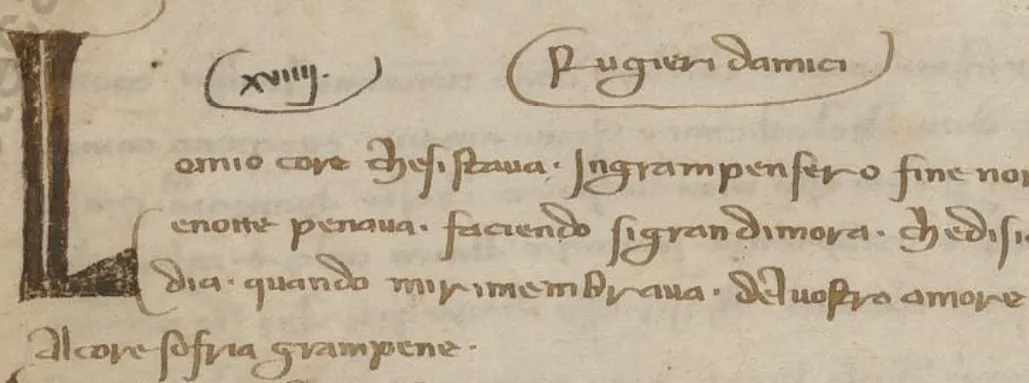 xviiij. Rugieri damici
Lomio core chesistaua · Ingrampensero fine
enotte penaua · faciendo sigrandimora ·
dia · quando mirimembraua · deluostro amore
Alcore sofria grampene ·